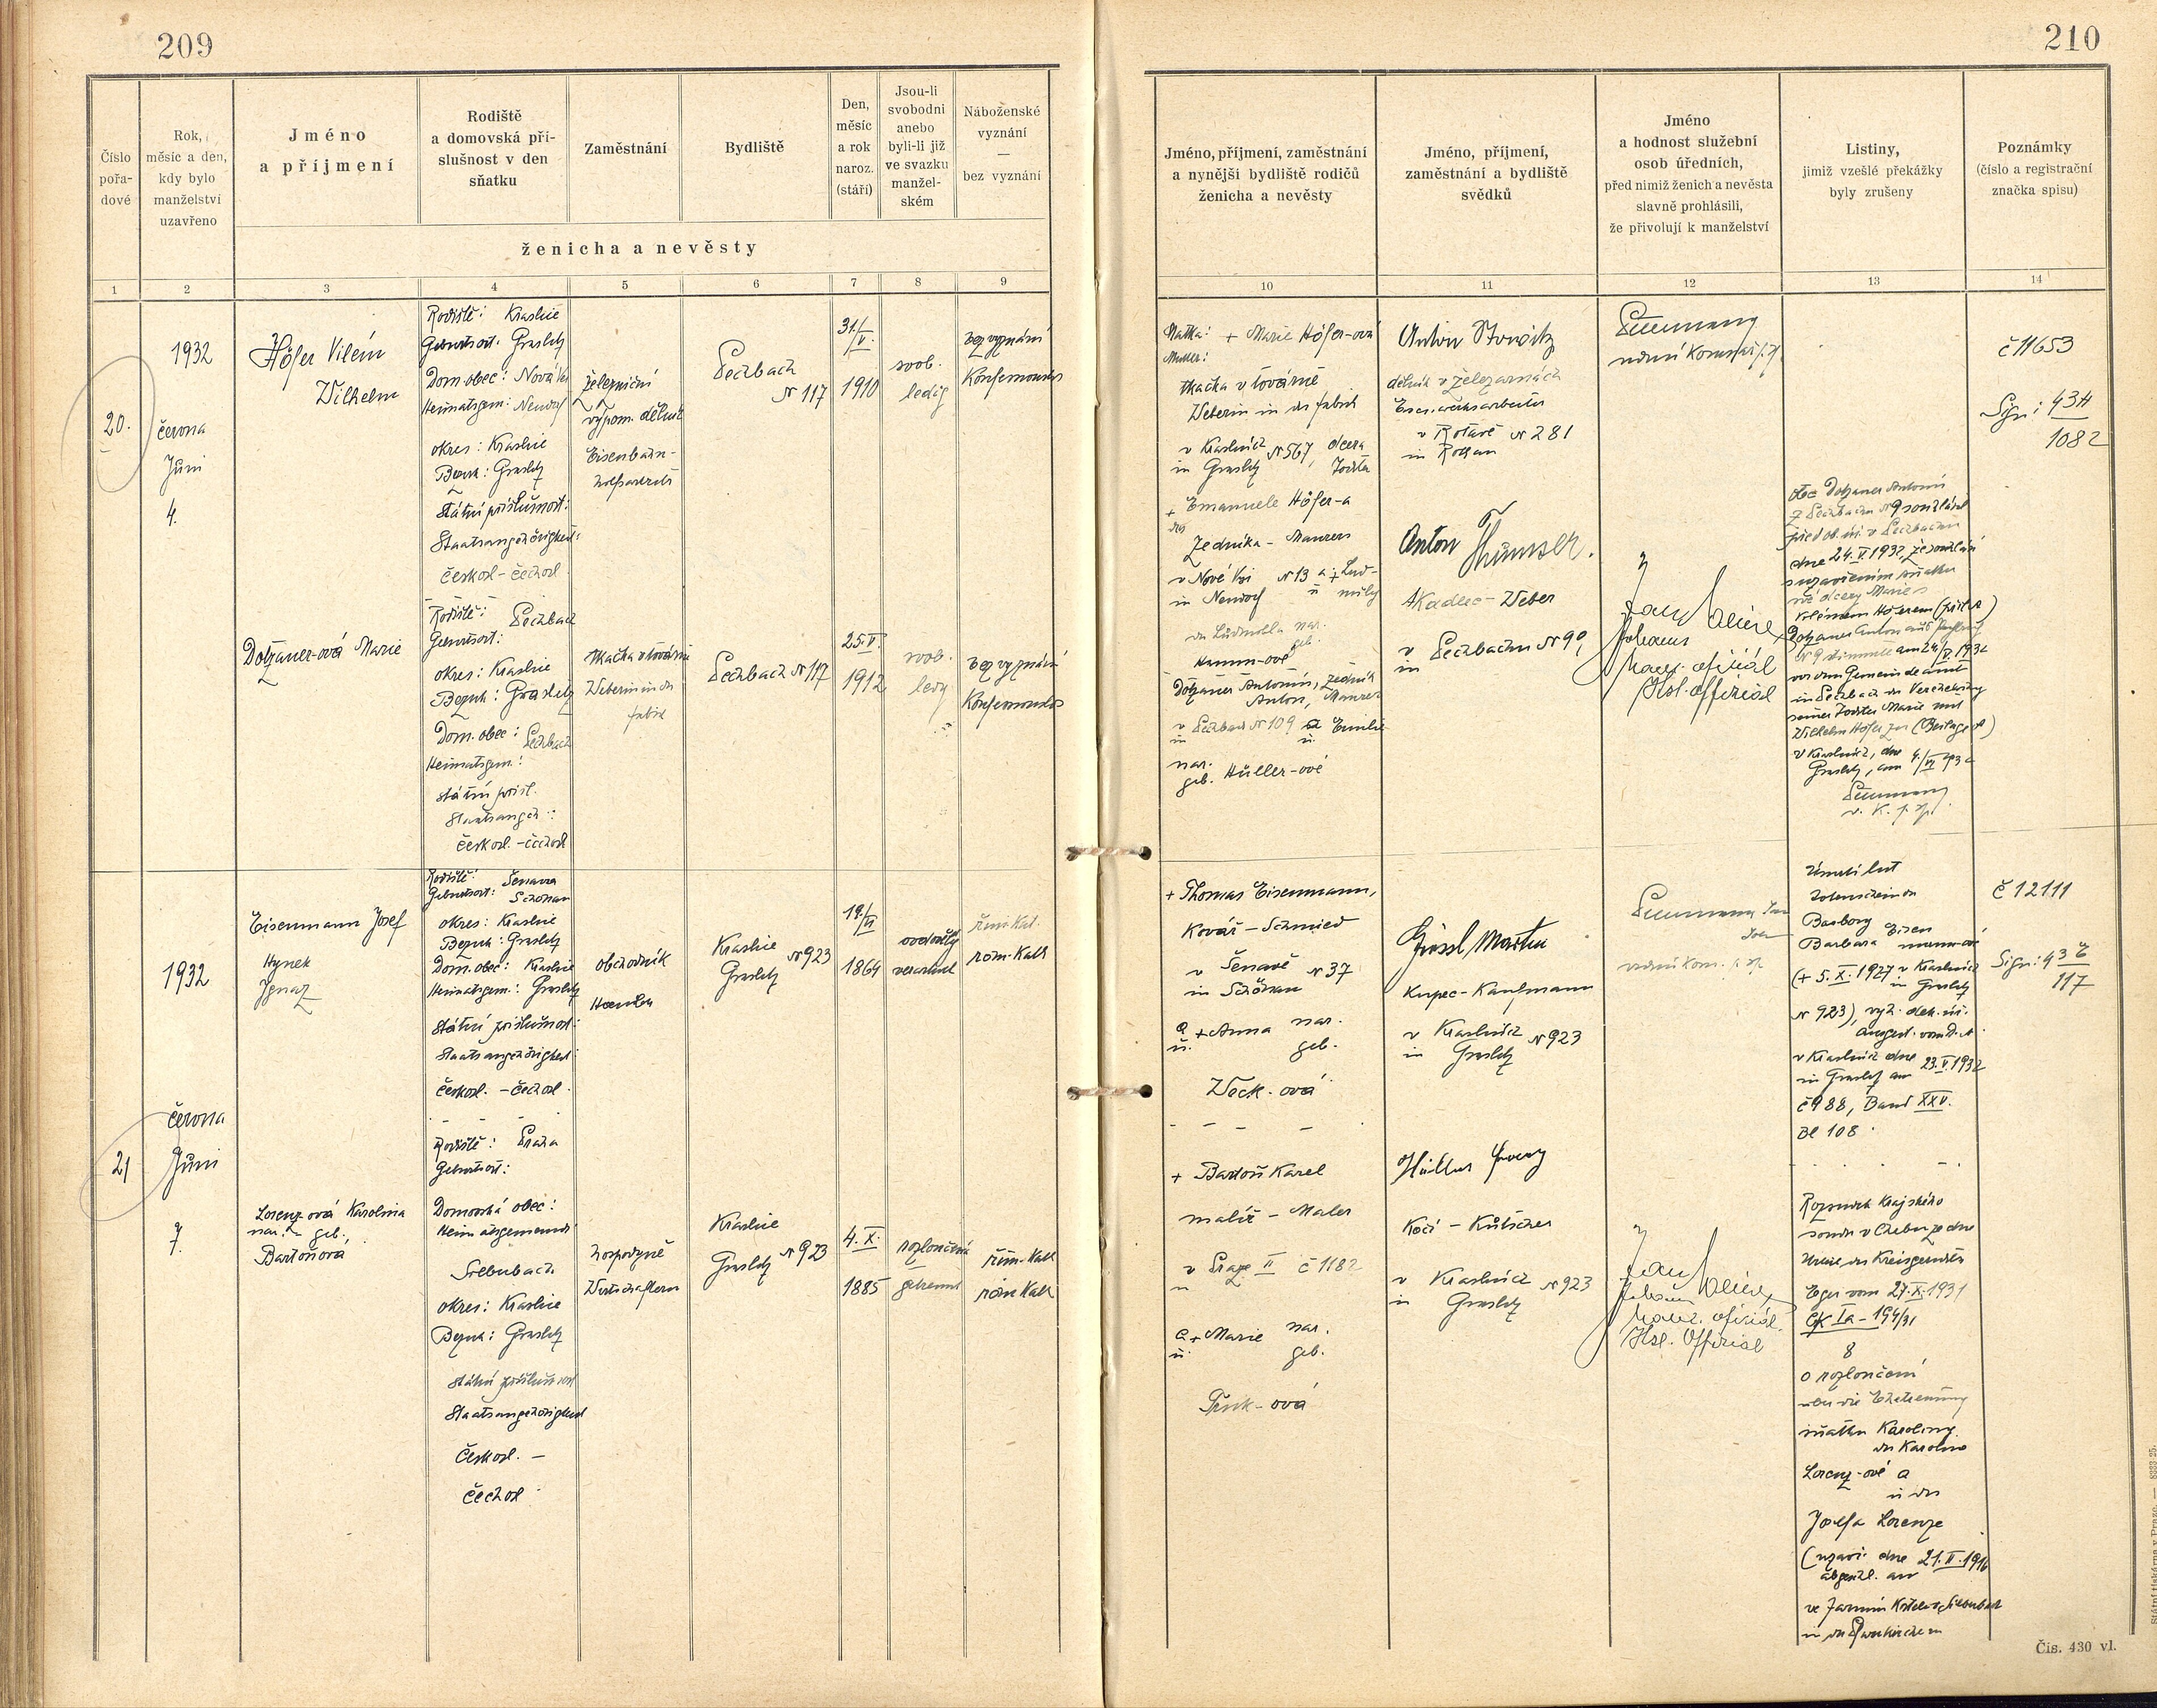 209
210
Číslo
pořa-
dové
Rok,
měsíc a den,
kdy bylo
manželství
uzavřeno
Jméno
a příjmení
Rodiště
a domovská pří-
slušnost v den
sňatku
Zaměstnání
Bydliště
Den,
měsíc
a rok
naroz.
(stáří)
Jsou-li
svobodni
anebo
byli-li již
ve svazku
manžel-
ském
Náboženské
vyznání
—
bez vyznání
ženicha a nevěsty
Jméno, příjmení, zaměstnání
a nynější bydliště rodičů
ženicha a nevěsty
Jméno, příjmení,
zaměstnání a bydliště
svědků
Jméno
a hodnost služební
osob úředních,
před nimiž ženich a nevěsta
slavně prohlásili,
že přivolují k manželství
Listiny,
jimiž vzešlé překážky
byly zrušeny
Poznámky
(číslo a registrační
značka spisu)
1 2 3 4 5 6 7 8 9
10 11 12 13 14
20.
1932
června
Juni
4.
Höfer Vilém
Wilhelm
Rodiště: Kraslice
Geburtsort: Graslitz
Dom. obec: Nová
Heimatsgem:
okres: Kraslice
Bezirk: Graslitz
Státní příslušnost:
Staatsangehörigkeit:
českosl - čechosl
železniční
výpom. dělník
Eisenbahn-
Pechbach
N 117
31./V.
1910
svob.
ledig
bez vyznání
Matka: + Marie Höfer-ová
Mutter:
tkačka v továrně
Weberin in der Fabrik
v Kraslicích N 567, dcera
in Graslitz Tochter
+ Emanuele Höfer-a
des
zedníka - Maurers
v Nové Vsi N 13 a + Lud-
in u mily
der Ludmilla nar.
geb.
Hamm-ové
Anton
dělník v železárnách
v Rotavě N 281
in Rothau
č 11653
Sign: 43H
1082
Dotzauer-ová Marie
Rodiště: Pechbach
Geburtsort:
okres: Kraslice
Bezirk: Graslitz
Dom. obec: Pechbach
Heimatsgem.:
státní přísl.
Staatsangeh.:
českosl. - čechosl
tkačka v továrně
Weberin in der
Fabrik
Pechbach N 117
25. V.
1912
svob.
ledig
bez vyznání
Dotzauer Antonín, zedník
Anton, Maurer
v Pechbach N 109 a Emilie
in u.
nar.
geb. Hüller-ové
Anton
tkadlec - Weber
v Pechbachu N 90
in
Johann
Kanc. oficiál
Kzl. Offizial
otec Dotzauer Antonín
z Pechbachu N 9
před ob. úř. v Pechbachu
dne 24. V 1932
své dcery Marie s
Vilémem Höferem
Dotzauer Anton aus
am 24/V. 1932
vor dem Gemeindeamte
in Pechbach der
seiner Tochter Marie mit
Wilhelm Höfer zu (Beilage)
v Kraslicích, dne
Graslitz, am 4./VI 1932
21
1932
června
Juni
7.
Eisenmann Josef
Hynek
Ignaz
Rodiště: Šenava
Geburtsort: Schönau
okres: Kraslice
Bezirk: Graslitz
Dom. obec: Kraslice
Heimatsgem.: Graslitz
Státní příslušnost:
Staatsangehörigkeit:
českosl. - čechosl.
obchodník
Kraslice
Graslitz N 923
19./
1864
ovdovělý
verwitwet
řím. kat.
röm. Kath
+ Thomas Eisenmann,
Kovář - Schmied
v Šenavě N 37
in Schönau
a + Anna nar.
u. geb.
Weck-ová
Martin
Kupec - Kaufmann
v Kraslicích N 923
in Graslitz
Úmrtní list
Totenschein der
Barbory
Barbara
(+ 5. X. 1927 v Kraslicích
in Graslitz
N 923), vyh. děk. úř.
v Kraslicích dne 23. V. 1932
in Graslitz am
č 988, Band XXV.
Bl 108
č 12111
Sign: 43 E
117
Lorenz-ová Karolina
nar. - geb.,
Bartoňová
Rodiště: Praha
Geburtsort:
Domovská obec:
Heimatsgemeinde
Silberbach
okres: Kraslice
Bezirk: Graslitz
Státní příslušnost
Staatsangehörigkeit
Českosl. -
Čechosl
hospodyně
Wirtschafterin
Kraslice
Graslitz N 923
4. X.
1885
rozloučená
getrennt
řím. kath
röm Kath
+ Bartoň Karel
malíř - Maler
v Praze II č 1182
in
a + Marie nar.
u. geb.
Kočí - Kutscher
v Kraslicích N 923
in Graslitz
Johann
Kanc. oficiál
Kzl. Offizial
Rozsudek Krajského
soudu v Chebu ze dne
Urteil des Kreisgerichtes
Eger vom 27. X. 1931
Ck Ia - 194/31
8
o rozloučení
über die Ehetrennung
sňatku Karoliny
der Karoline
Lorenz-ové a
u der
Josefa Lorenze
(uzavř. dne 21. II. 1916
abgeschl. am
ve farním kostele v Silberbach
in der Pfarrkirche in
Čis. 430 vl.
Státní tiskárna v Praze. — 8333-25.